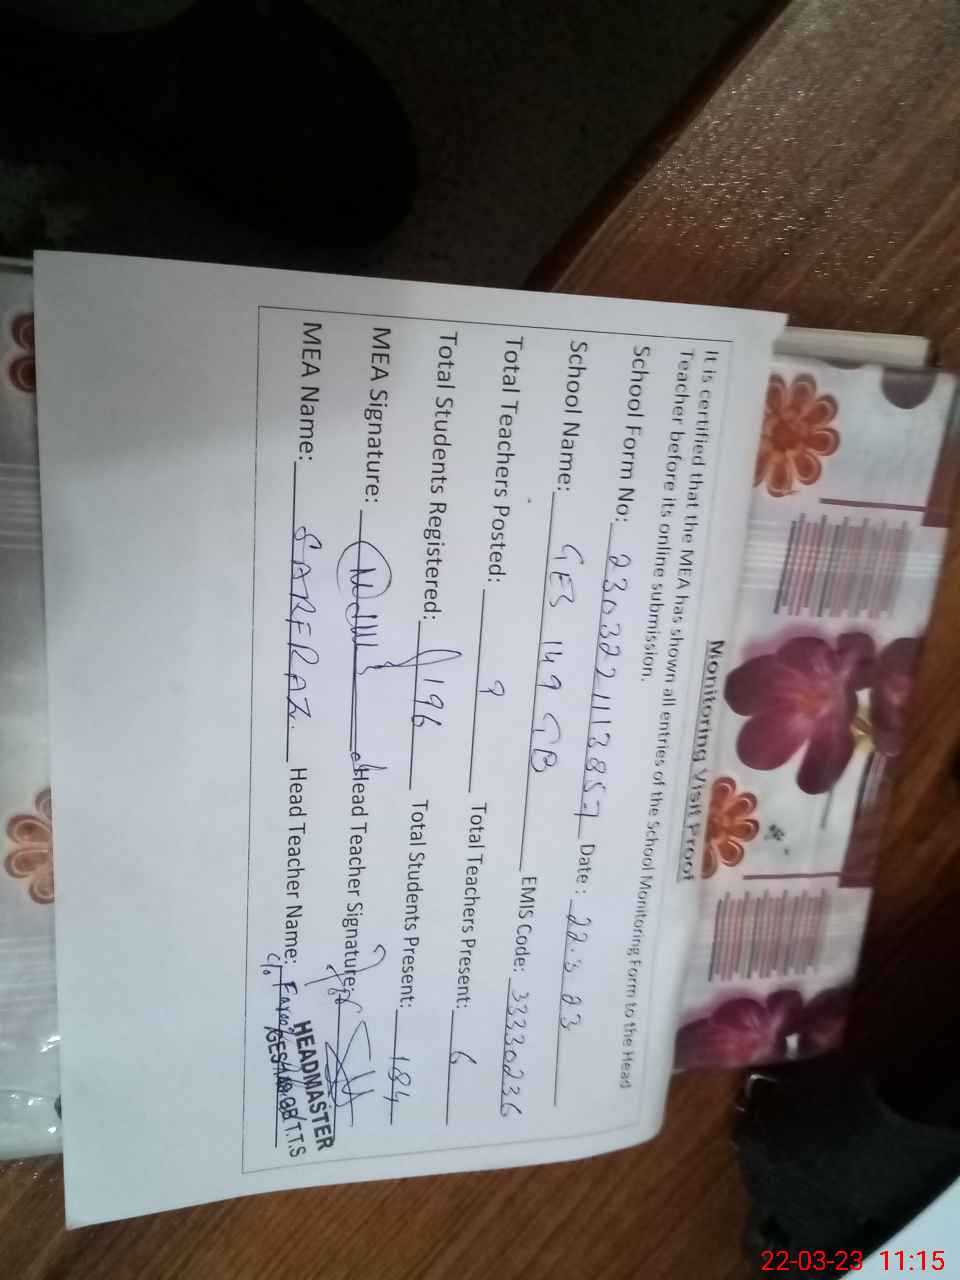 Monitoring Visit Proof
It is certified that the MEA has shown all entries of the School Monitoring Form to the Head
Teacher before its online submission.
School Form No: 2303221113857 Date: 22.3.23
School Name: GES 149 GB EMIS Code: 33330236
Total Teachers Posted: 9 Total Teachers Present: 6
Total Students Registered: 196 Total Students Present: 184
MEA Signature: Head Teacher Signature:
HEADMASTER
MEA Name: SARFRAZ. Head Teacher Name:
GB/T.T.S
22-03-23 11:15